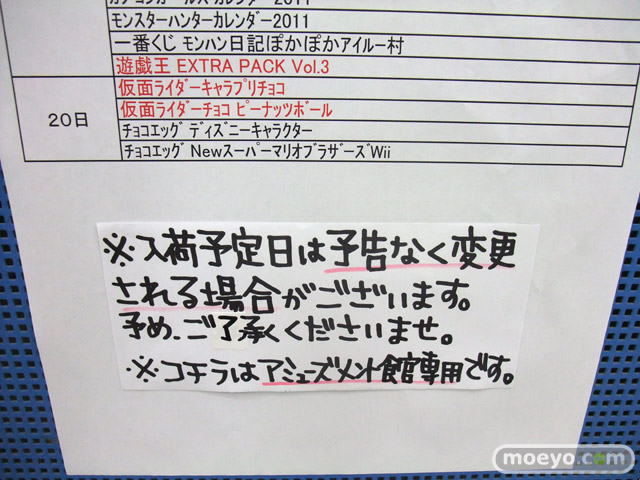 モンスターハンターカレンダー2011
一番くじ モンハン日記ぽかぽかアイルー村
遊戯王 EXTRA PACK Vol.3
20日
仮面ライダーキャラプリチョコ
仮面ライダーチョコ ピーナッツボール
チョコエッグ ディズニーキャラクター
チョコエッグ NewスーパーマリオブラザーズWii
※入荷予定日は予告なく変更
される場合がございます。
予め、ご了承くださいませ。
※コチラはアミューズメント館専用です。
moeyo.com